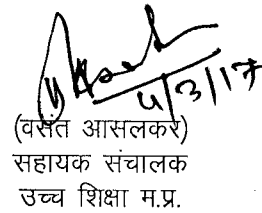 4/3/17
(वसंत आसलकर)
सहायक संचालक
उच्च शिक्षा म.प्र.